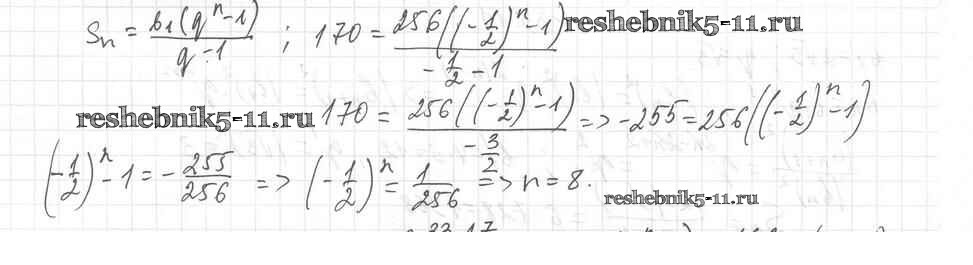 Sₙ = b₁(qⁿ-1)/(q-1) ; 170 = 256((-1/2)ⁿ-1)/(-1/2 - 1) reshebnik5-11.ru
reshebnik5-11.ru 170 = 256((-1/2)ⁿ-1)/(-3/2) => -255=256((-1/2)ⁿ-1)
(-1/2)ⁿ-1 = -255/256 => (-1/2)ⁿ = 1/256 => n = 8.
reshebnik5-11.ru